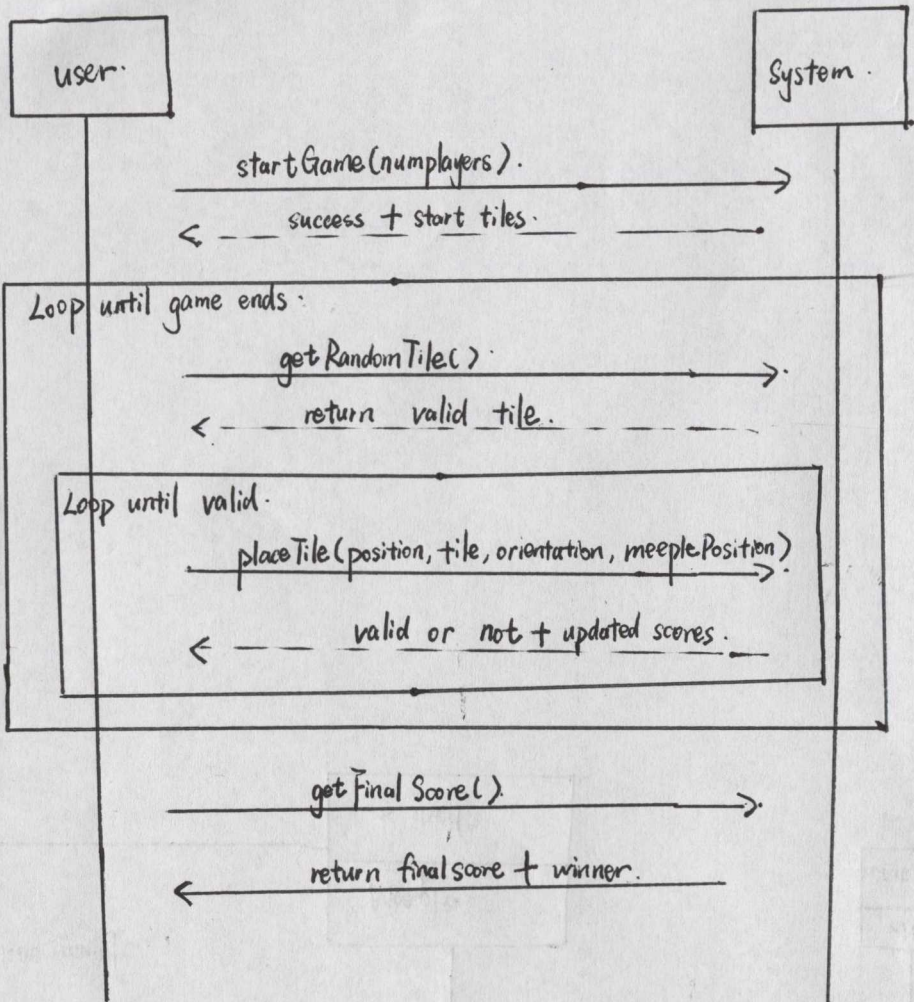 user.
System.
startGame(numplayers).
success + start tiles.
Loop until game ends.
getRandomTile().
return valid tile.
Loop until valid.
placeTile(position, tile, orientation, meeplePosition)
valid or not + updated scores.
getFinalScore().
return finalscore + winner.